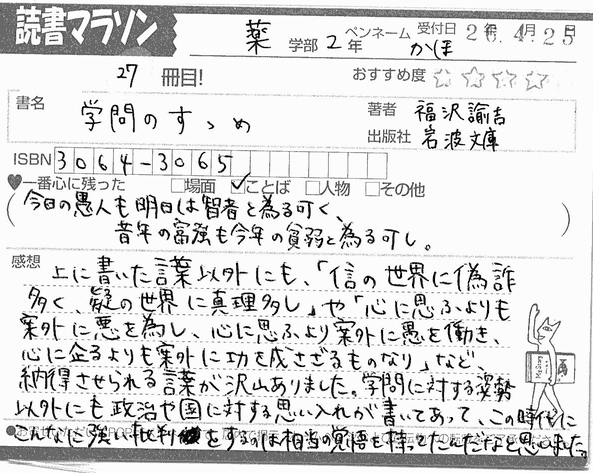 読書マラソン
薬 学部 2 年 ペンネーム かほ 受付日 26.4.25
27 冊目! おすすめ度 ☆☆☆☆
書名 学問のすゝめ 著者 福沢諭吉
出版社 岩波文庫
ISBN 3064-3065
♥一番心に残った □場面 ☑ことば □人物 □その他
(今日の愚人も明日は智者と為る可く、
昔年の富強も今年の貧弱と為る可し。)
感想 上に書いた言葉以外にも、「信の世界に偽詐
多く、疑の世界に真理多し」や「心に思ふよりも
案外に悪を為し、心に思ふより案外に愚を働き、
心に企るよりも案外に功を成さざるものなり」など、
納得させられる言葉が沢山ありました。学問に対する姿勢
以外にも政治や国に対する思い入れが書いてあって、この時代に
こんなに強い批判をするのは相当の覚悟を持ってたんだなと思いました。